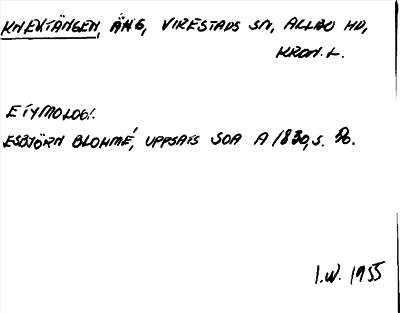 KNEKTÄNGEN, ÄNG, VIRESTADS SN, ALLBO HD,
KRON. L.
ETYMOLOGI.
ESBJÖRN BLOHMÉ, UPPSATS SOA A 1830, S.
I.W. 1955